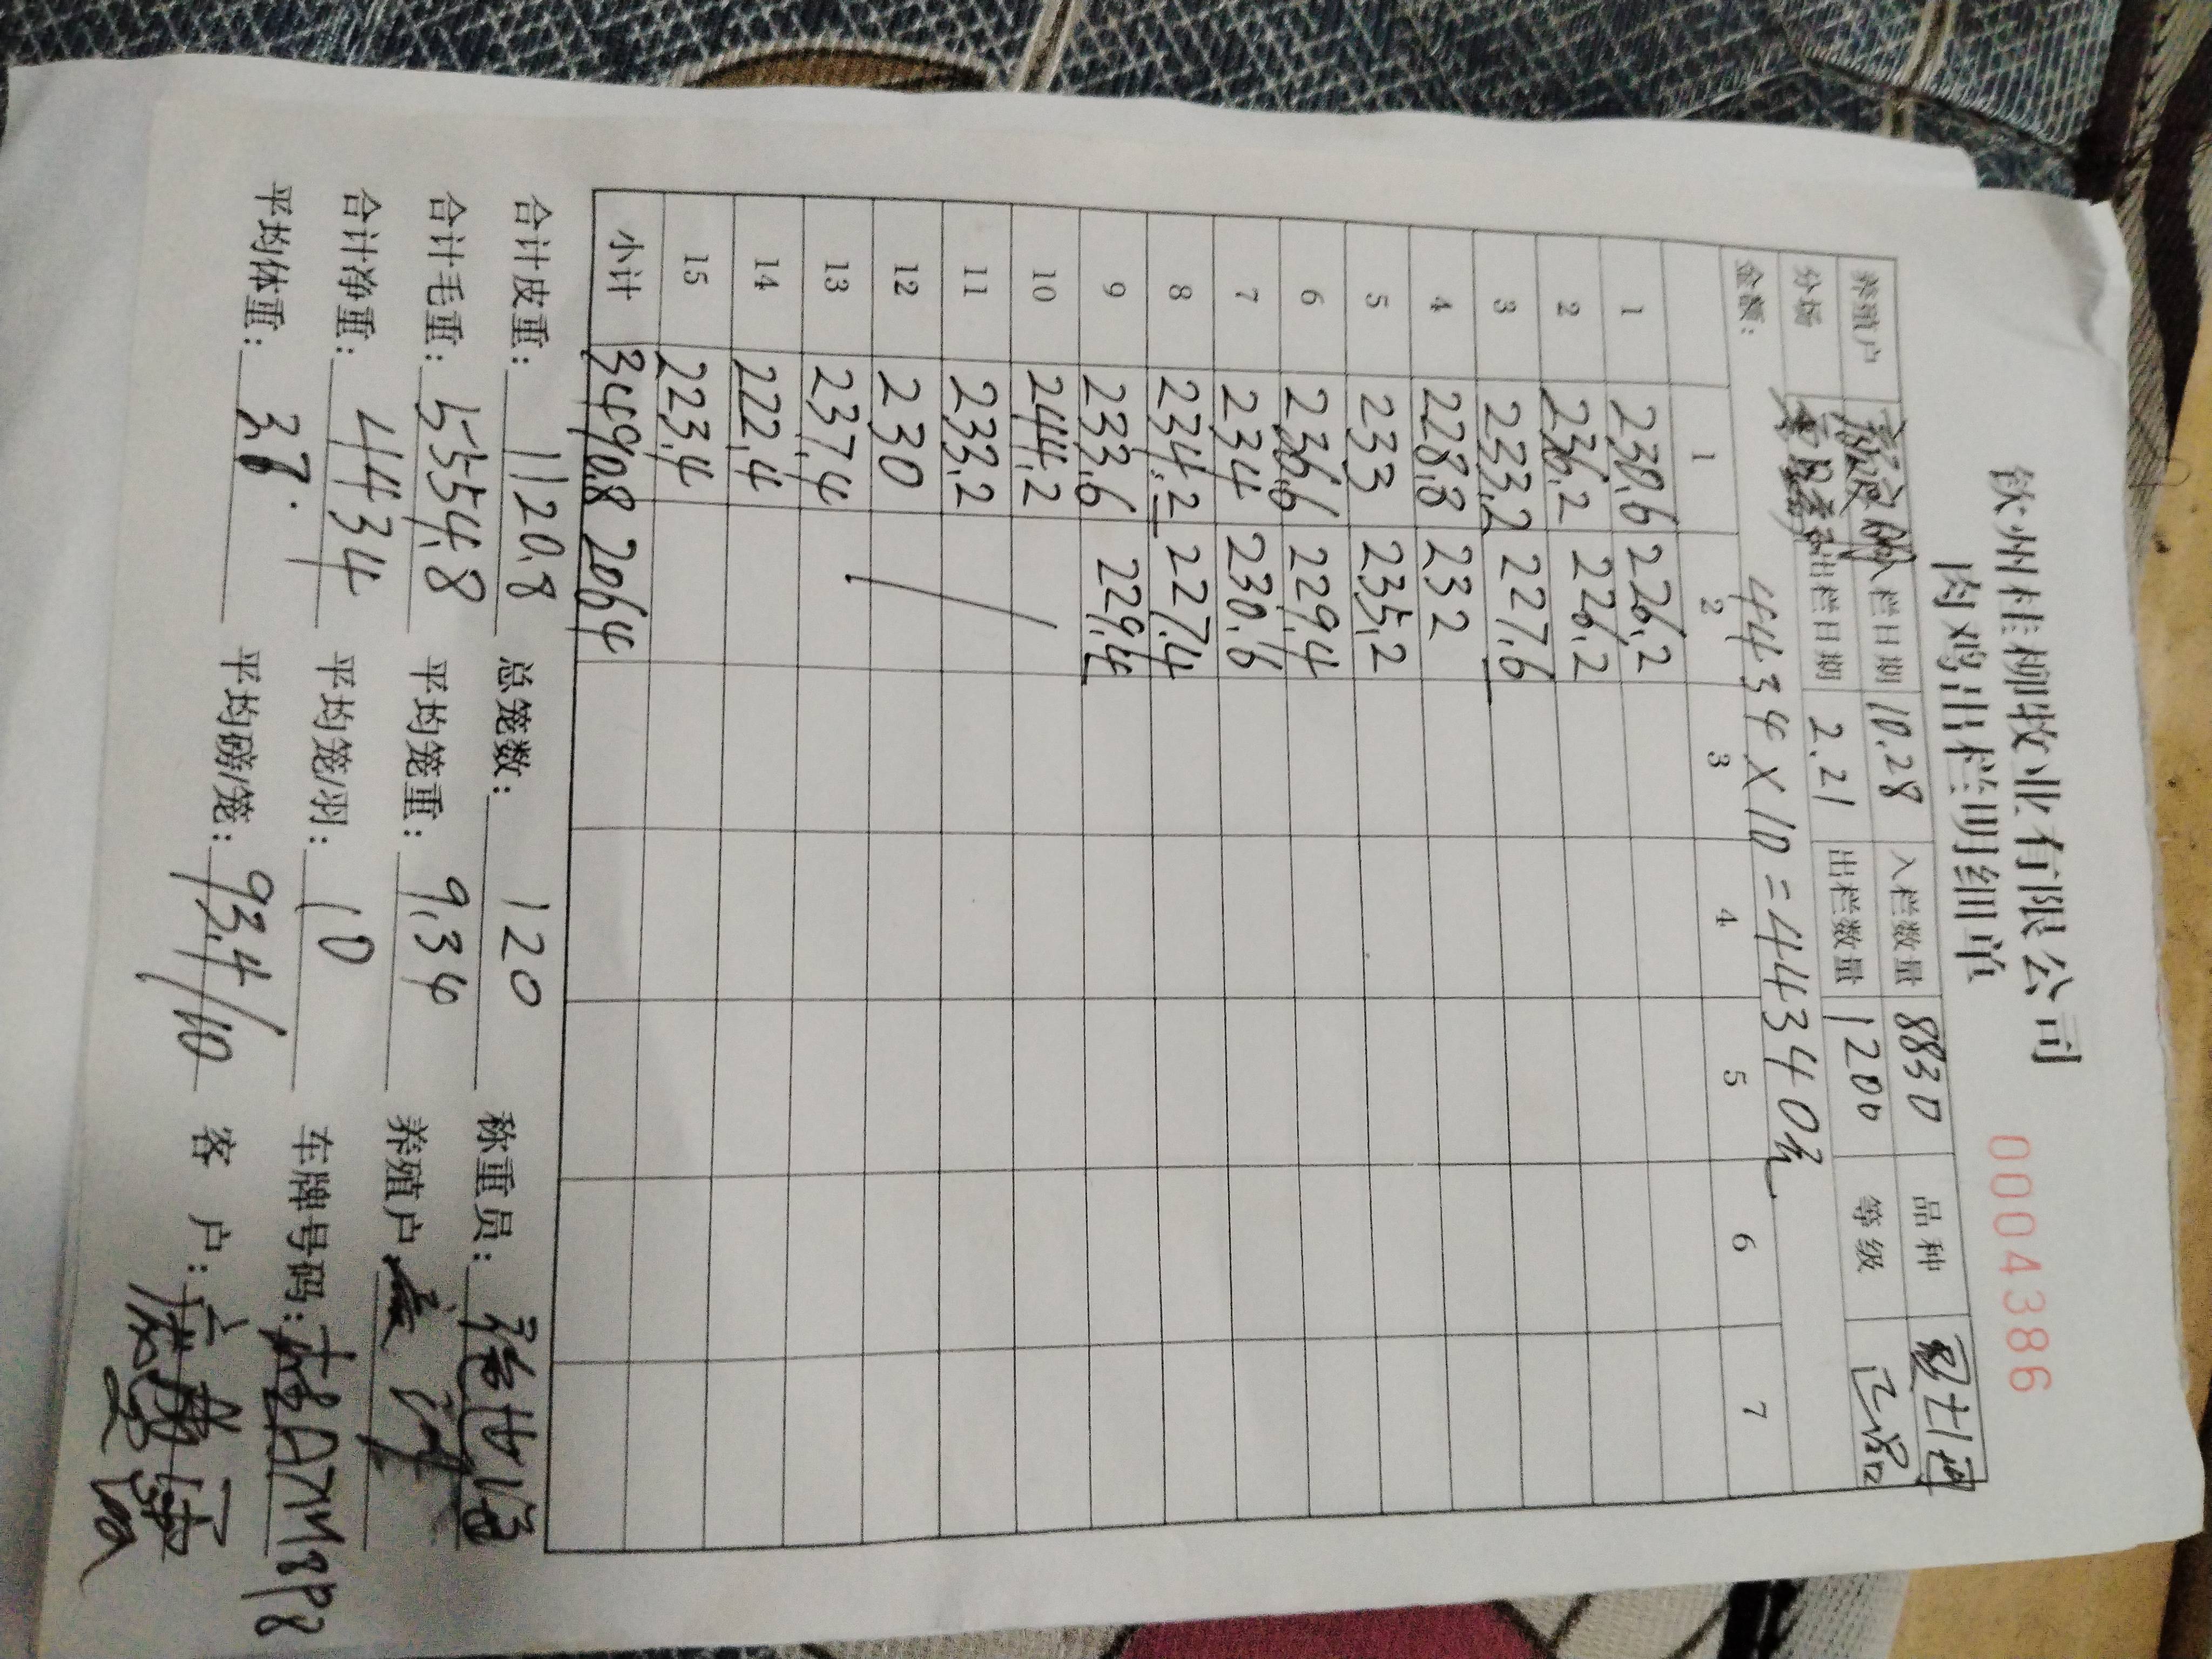 钦州桂柳牧业有限公司
肉鸡出栏明细单
0004386
养殖户 入栏日期 10.28 入栏数量 8830 品种
分场 出栏日期 2.21 出栏数量 1200 等级
金额: 4434×10=44340元
1 2 3 4 5 6 7
1 230.6 226.2
2 236.2 226.2
3 233.2 227.6
4 228.8 232
5 233 235.2
6 236.6 229.4
7 234 230.6
8 234.2 227.4
9 233.6 229.4
10 244.2
11 233.2
12 230
13 237.4
14 222.4
15 223.4
小计 3490.8 2064
合计皮重: 1120.8 总笼数: 120 称重员:
合计毛重: 5554.8 平均笼重: 9.34 养殖户
合计净重: 4434 平均笼/羽: 10 车牌号码:
平均体重: 3.7 平均磅/笼: 93.4/10 客户: